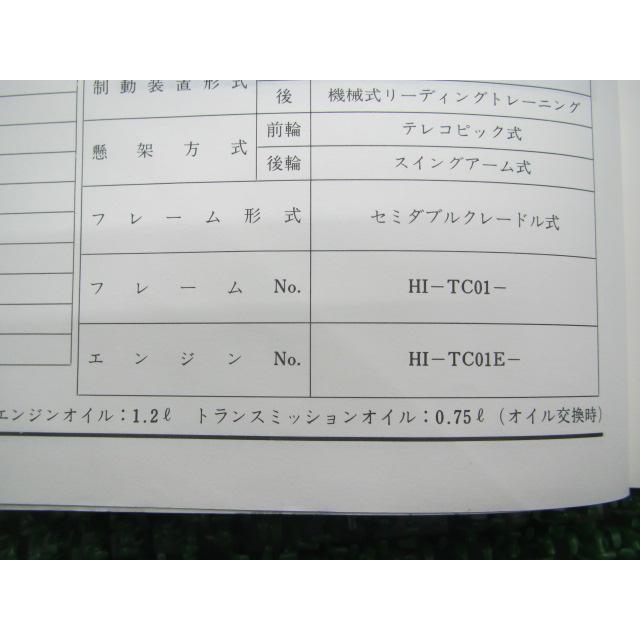 制動装置形式
後 機械式リーディングトレーニング
懸架方式 前輪 テレコピック式
後輪 スイングアーム式
フレーム形式 セミダブルクレードル式
フレーム No. HI-TC01-
エンジン No. HI-TC01E-
エンジンオイル：1.2ℓ トランスミッションオイル：0.75ℓ（オイル交換時）